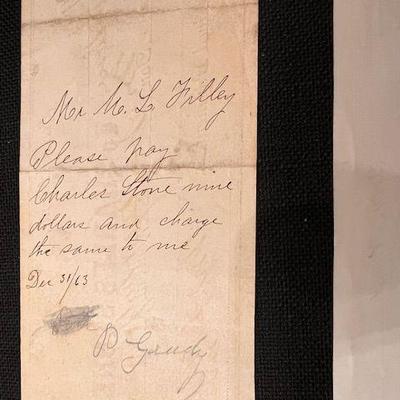 Mr M. L Filley
Please pay
Charles Stone nine
dollars and charge
the same to me
Dec 31/63
P Grudy